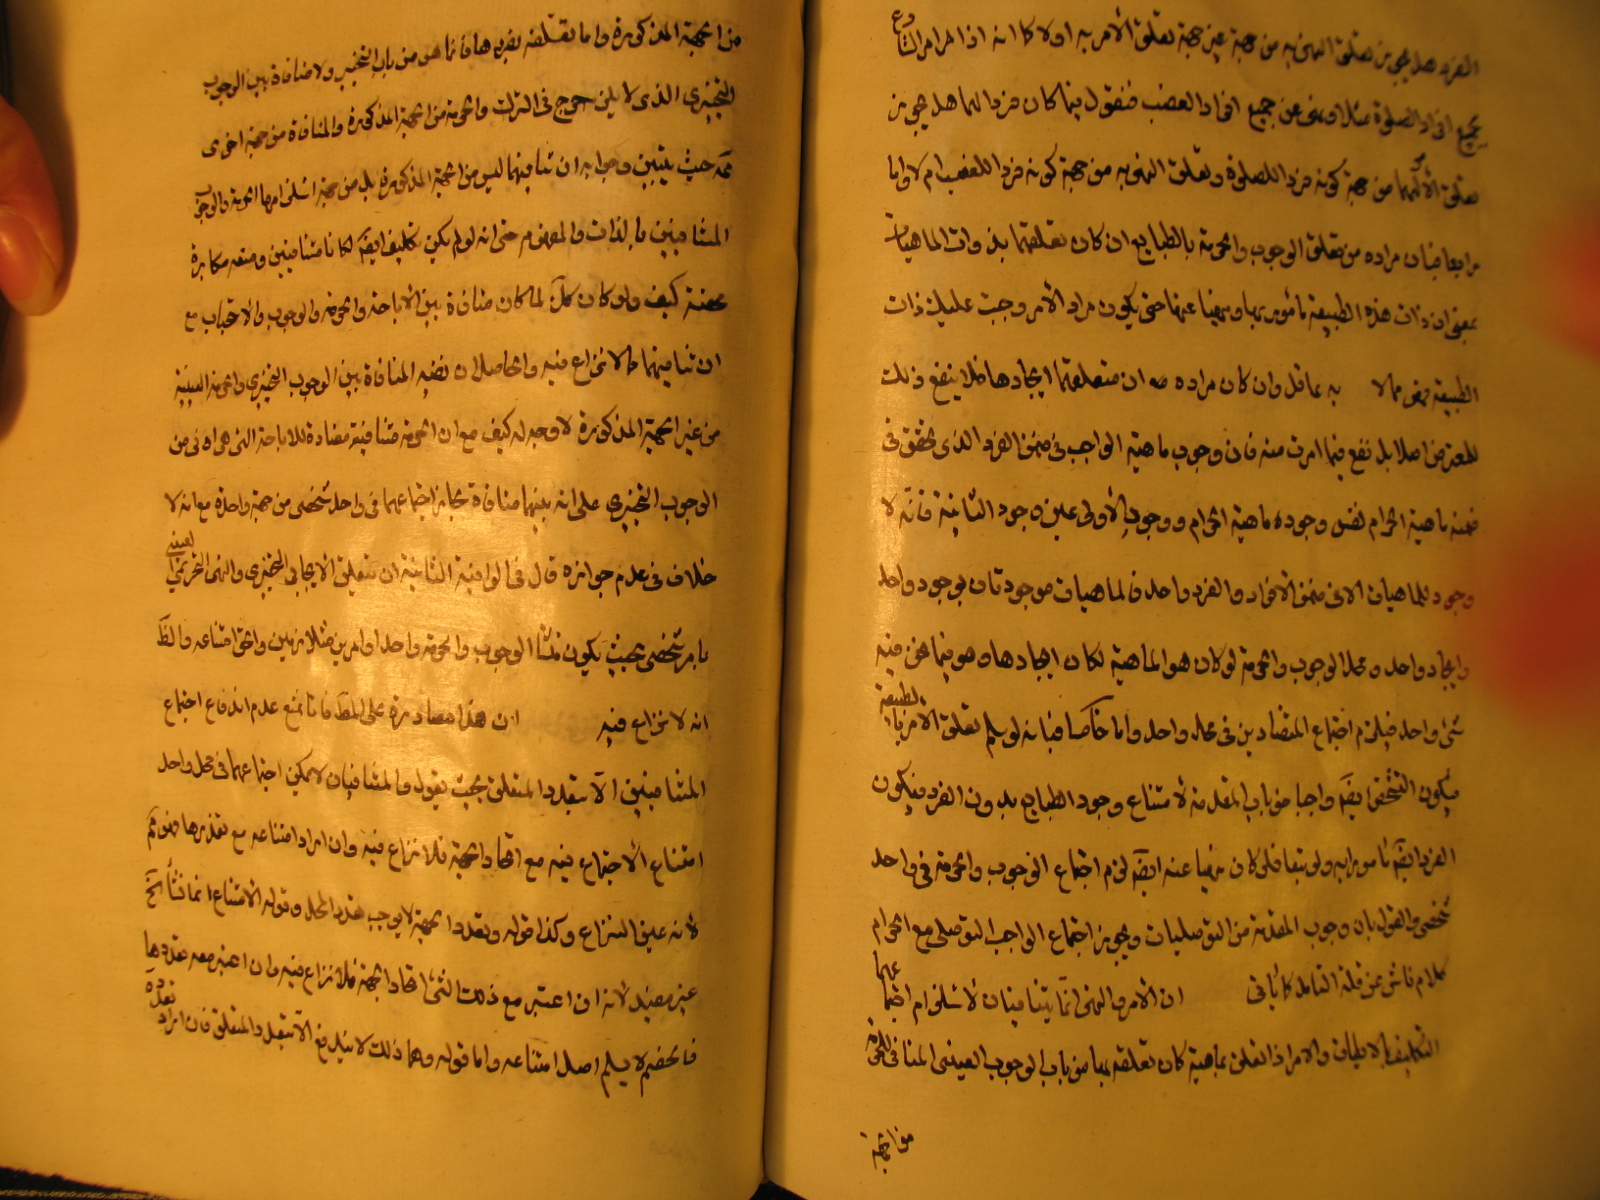 الفرد هل يجوز تعلق النهي به من جهة غير جهة تعلق الأمر به اولا كما انه اذا امر الشارع
بجميع افراد الصلوة مثلا ونهى عن جميع افراد الغصب فنقول فيما كان فردا لهما هل يجوز
تعلق الأمر بهما من جهة كونه فردا للصلوة وتعلق النهي به من جهة كونه فردا للغصب ام لا واما
رابعا فبان مراده من تعلق الوجوب والحرمة بالطبايع ان كان تعلقهما بذوات الماهيات
بمعنى ان ذات هذه الطبيعة مأمور بها ومنهيا عنها حتى يكون مراد الأمر وجبت عليك ذات
الطبيعة فهي مما لا به عاقل وان كان مراده ان متعلقهما ايجادها فلا ينفع ذلك
للمعترض اصلا بل نفع فيما امرت منه فان وجوب ماهية الواجب في ضمن الفرد الذي تحقق في
ضمنه ماهية الحرام نفس وجوده ماهية الحرام ووجود الأولى عين وجود الثانية فانه لا
وجود للماهيات الا في ضمن الأفراد والفرد واحد فالماهيات موجودتان بوجود واحد
وايجاد واحد ومحل الوجوب والحرمة لو كان هو الماهية لكان ايجادها وهو فيما نحن فيه
شئ واحد فيلزم اجتماع المتضادين في محل واحد واما خامسا فبانه لو سلم تعلق الأمر بالطبيعة
فيكون الشخص ايضا واجبا من باب المقدمة لامتناع وجود الطبايع بدون الفرد فيكون
الفرد ايضا مأمورا به ولو تبعا فلو كان منهيا عنه ايضا لزم اجتماع الوجوب والحرمة في واحد
شخصي والقول بان وجوب المقدمة من التوصليات ويجوز اجتماع الواجب التوصلي مع الحرام
كلام ناش عن قلة التأمل كما يأتي ان الأمر والنهي انما يتنافيان لاستلزام اجتماعهما
التكليف بالايطاق والامر اذا تعلق بماهية كان تعلقه بها من باب الوجوب العيني المنافي للحرمة
من الجهة
من الجهة المذكورة واما تعلقه بفردها فانما هو من باب التخيير ولا منافاة بين الوجوب
التخييري الذي لا يلزم حرج في الترك والحرمة من الجهة المذكورة والمنافاة من جهة اخرى
حيث يتبين وجوابه ان تنافيهما ليس من الجهة المذكورة بل من جهة استلزامها الحرمة والوجوب
المتنافيين بالذات والمفهوم حتى انه لو لم يكن تكليف ايضا لكانا متنافيين ومنعه مكابرة
محضة كيف ولو كان كك لما كان منافاة بين الأباحة والحرمة والوجوب والأحباب مع
ان تنافيهما مما لا نزاع فيه والحاصل ان نفيه المنافاة بين الوجوب التخييري والحرمة العينية
من غير الجهة المذكورة لا وجه له كيف مع ان الحرمة منافية مضادة للاباحة التي هي ادنى من
الوجوب التخييري على انه لو لم يكن بينهما منافاة لجاز اجتماعهما في واحد شخصي من جهة واحدة مع انه لا
خلاف في عدم جوازه قال في الوافية الثانية ان يتعلق الايجاب التخييري والنهي التحريمي العيني
بامر شخصي بحيث يكون منشأ الوجوب والحرمة واحدا وامرين متلازمين والحق امتناعه والظ
انه لا نزاع فيه ان هذا مصادرة على المط فانا نمنع عدم اندفاع اجتماع
المتنافيين الا بتعدد المتعلق بحيث يقول والمتنافيان لا يمكن اجتماعهما في محل واحد
امتناع الاجتماع فيه مع اتحاد الجهة فلا نزاع فيه وان اراد امتناعه مع تعددها فهو مم
لأنه عين النزاع وكذا قوله وتعدد الجهة لا يوجب تعدد المحل وقوله الامتناع انما نشأ الخ
غير مفيد لأنه ان اعتبر مع ذلك الشئ اتحاد الجهة فلا نزاع فيه وان اعتبر معه تعددها
فالخصم لا يسلم اصل امتناعه واما قوله وهما ذلك لا يندفع الا بتعدد المتعلق فان اراد تعدده